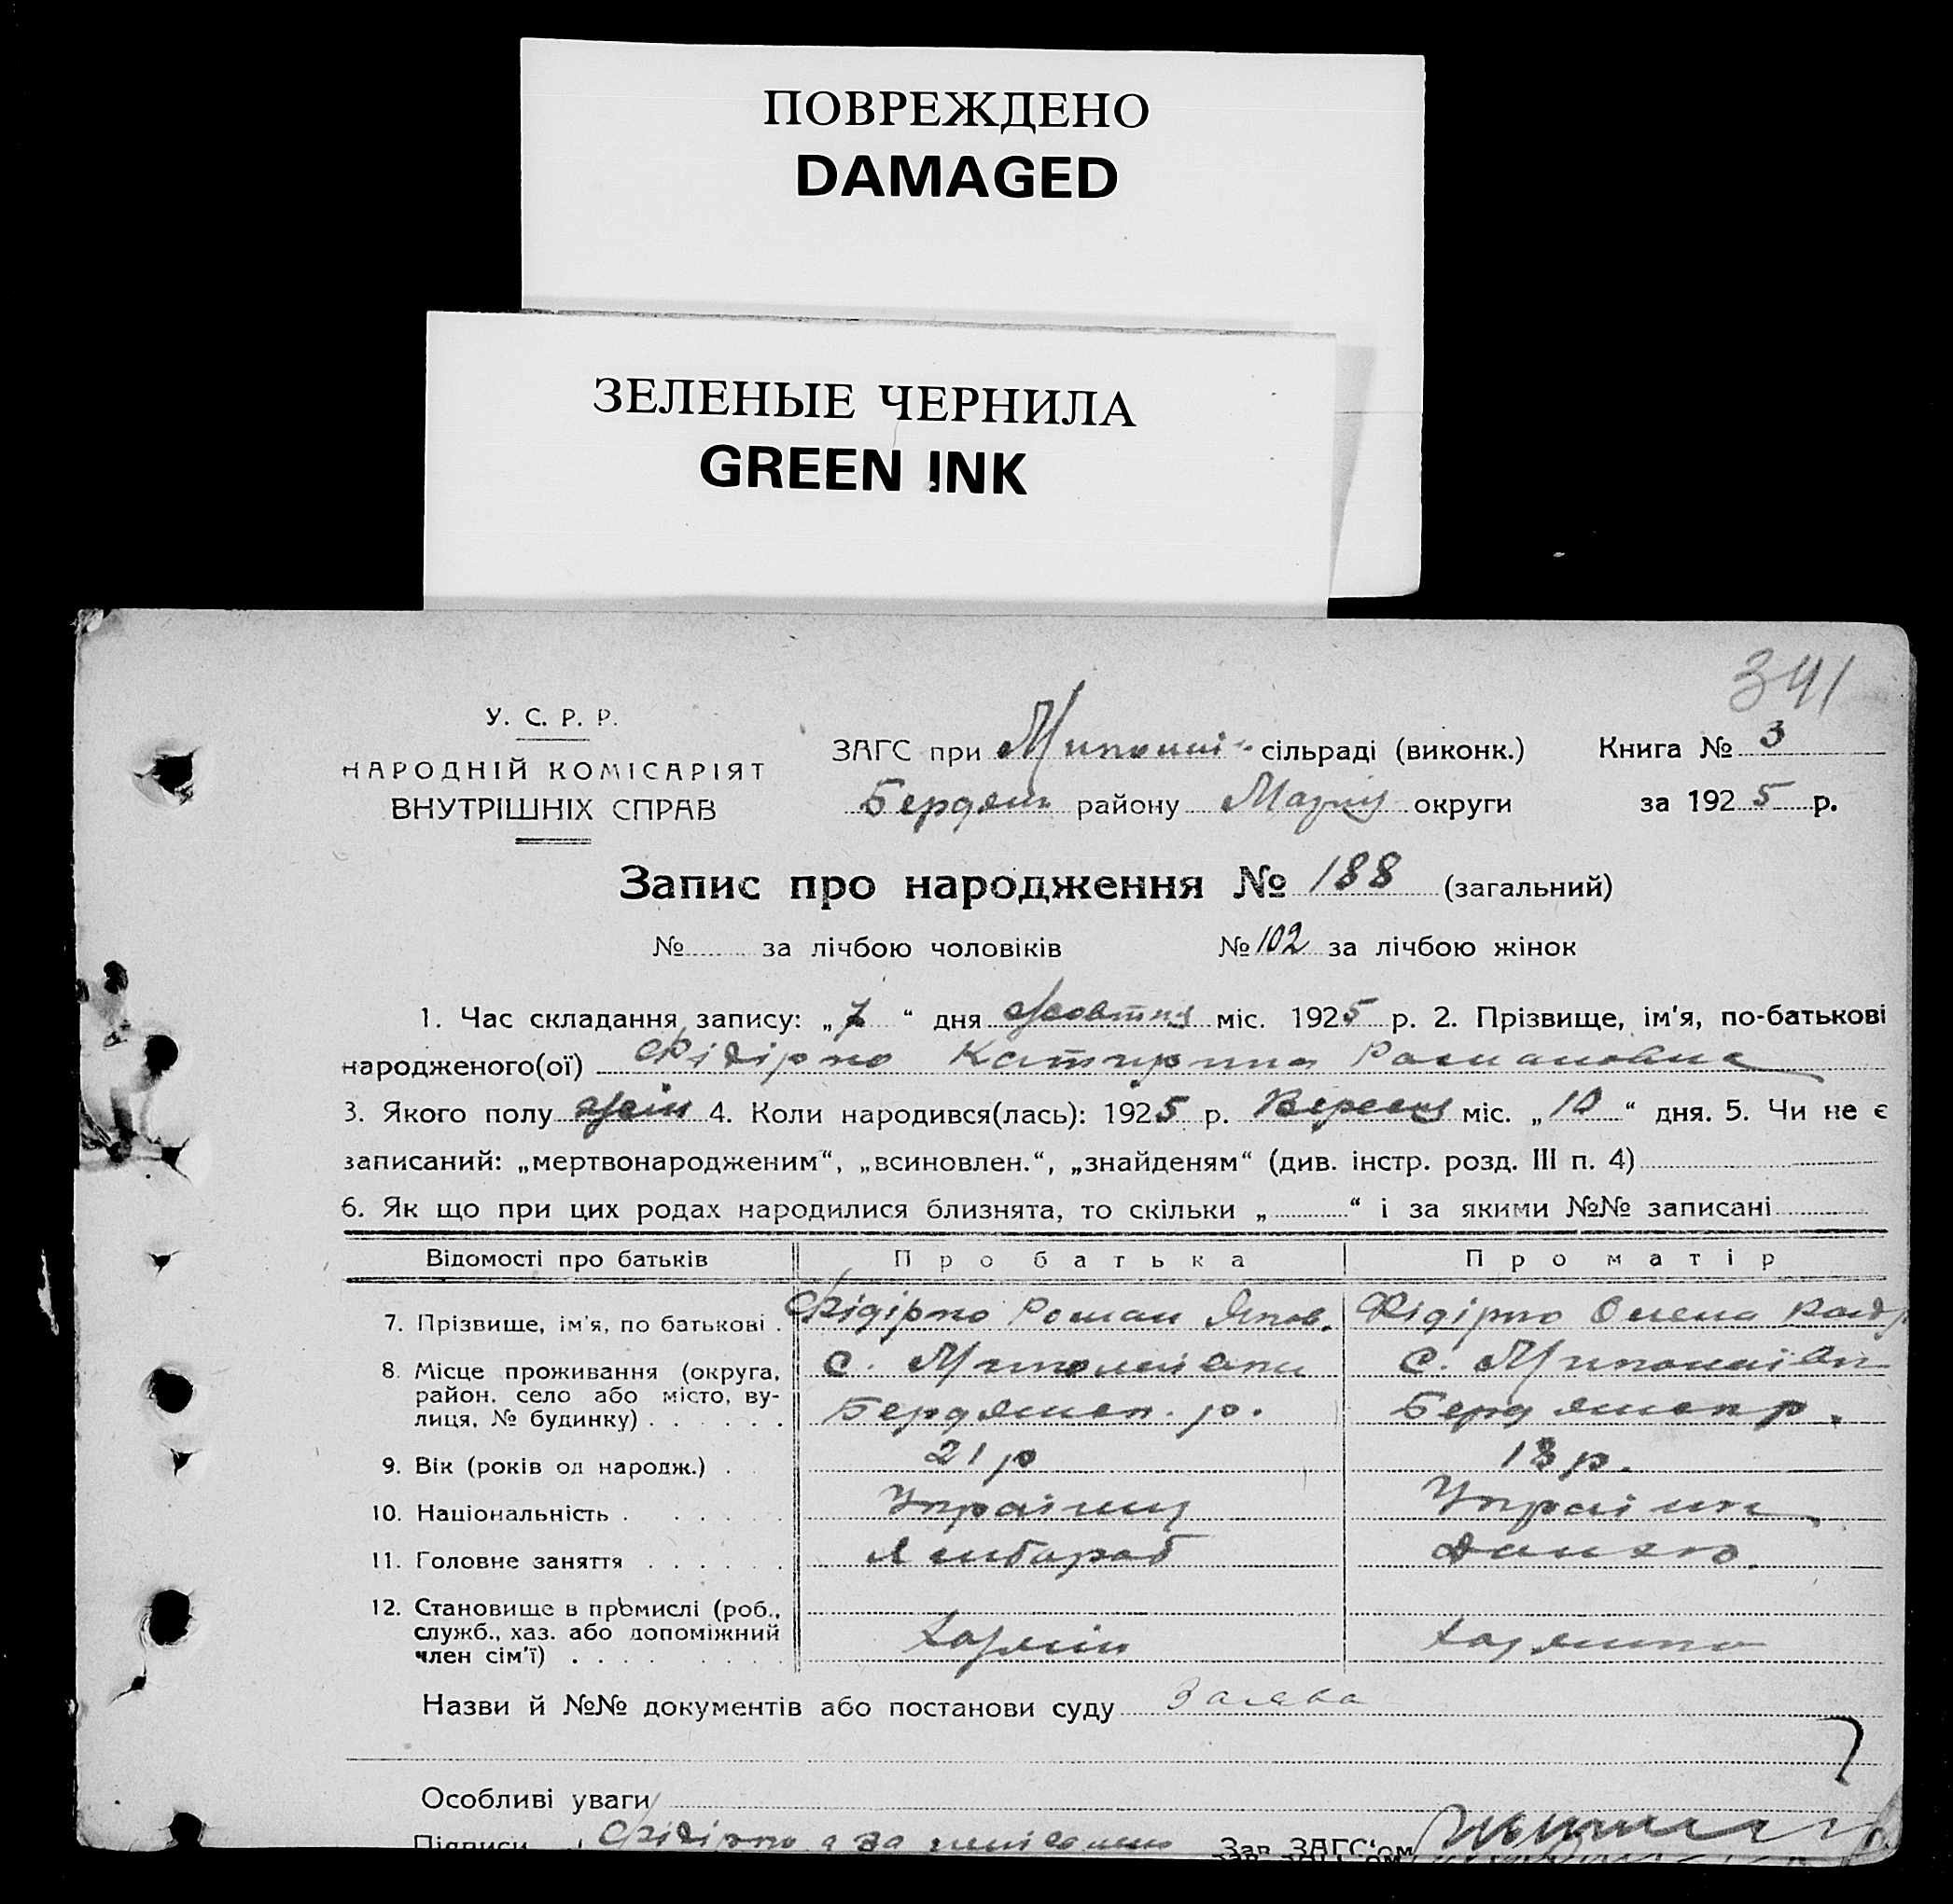 ПОВРЕЖДЕНО
DAMAGED
ЗЕЛЕНЫЕ ЧЕРНИЛА
GREEN INK
341
У. С. Р. Р.
НАРОДНІЙ КОМІСАРІЯТ
ВНУТРІШНІХ СПРАВ
ЗАГС при сільраді (виконк.) Книга № 3
Бердян району Маріу округи за 1925 р.
Запис про народження № 188 (загальний)
№ за лічбою чоловіків № 102 за лічбою жінок
1. Час складання запису: „7“ дня Жовтня міс. 1925 р. 2. Прізвище, ім'я, по-батькові
народженого(ої) Фідірко Катирина Романовна
3. Якого полу жін 4. Коли народився(лась): 1925 р. Вересня міс. „10“ дня. 5. Чи не є
записаний: „мертвонародженим“, „всиновлен.“, „знайденям“ (див. інстр. розд. III п. 4)
6. Як що при цих родах народилися близнята, то скільки „ “ і за якими №№ записані
Відомості про батьків Про батька Про матір
7. Прізвище, ім'я, по батькові . Фідірко Роман Яков. Фідірко Олена
8. Місце проживання (округа, с. с.
район, село або місто, ву-
лиця, № будинку) . . . . . . Бердянськ. р. Бердянськ р.
9. Вік (років од народж.) . 21 р 18 р.
10. Національність . . . . . Украінц Украінк
11. Головне заняття . . . . .
12. Становище в прьмислі (роб.,
служб., хаз. або допоміжний
член сім'ї) . . . . . . . . Хазяін Хазяйка
Назви й №№ документів або постанови суду Заява
Особливі уваги
Підписи Фідірко а за Зав. ЗАГС'ом